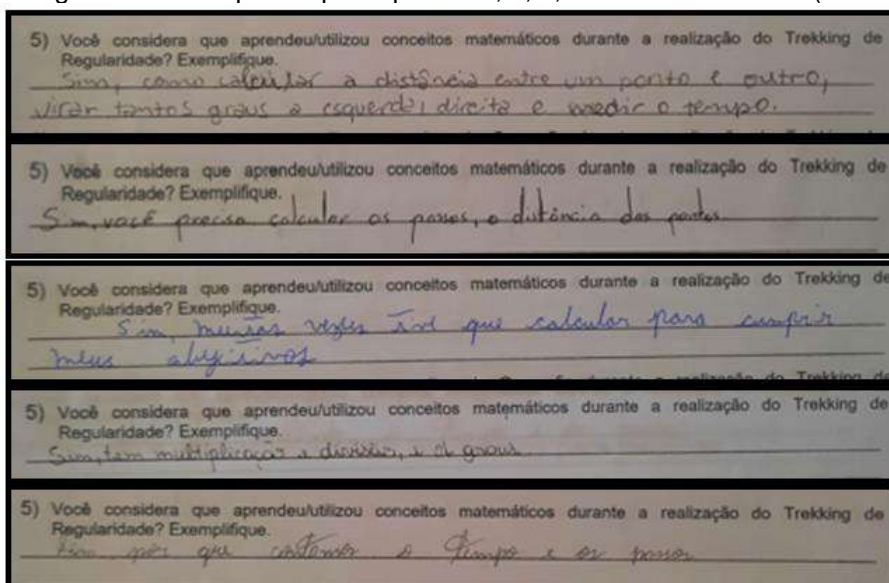 5) Você considera que aprendeu/utilizou conceitos matemáticos durante a realização do Trekking de
Regularidade? Exemplifique.
Sim, como calcular a distância entre um ponto e outro,
virar tantos graus a esquerda, direita e medir o tempo.
5) Você considera que aprendeu/utilizou conceitos matemáticos durante a realização do Trekking de
Regularidade? Exemplifique.
Sim, você precisa calcular os passos, a distância dos pontos
5) Você considera que aprendeu/utilizou conceitos matemáticos durante a realização do Trekking de
Regularidade? Exemplifique.
Sim, muitas vezes tive que calcular para cumprir
meus objetivos
5) Você considera que aprendeu/utilizou conceitos matemáticos durante a realização do Trekking de
Regularidade? Exemplifique.
Sim, tem multiplicação e divisão, e graus
5) Você considera que aprendeu/utilizou conceitos matemáticos durante a realização do Trekking de
Regularidade? Exemplifique.
por que contamos o tempo e os passos